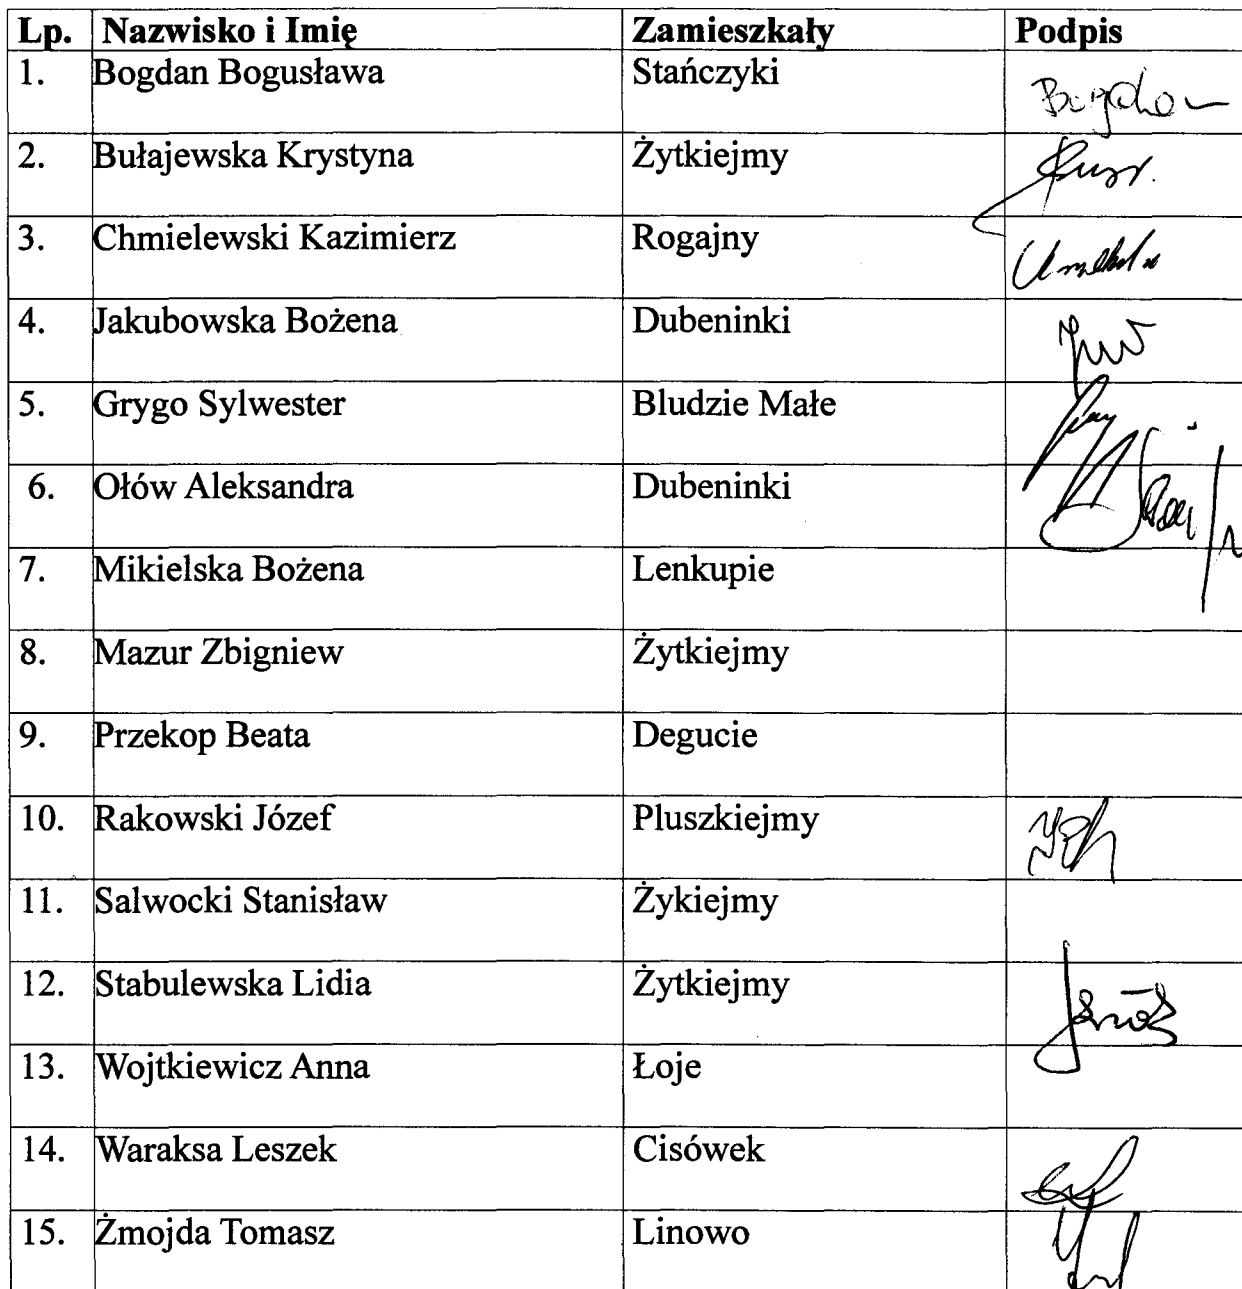 Lp. Nazwisko i Imię Zamieszkały Podpis
1. Bogdan Bogusława Stańczyki Bogdan
2. Bułajewska Krystyna Żytkiejmy
3. Chmielewski Kazimierz Rogajny
4. Jakubowska Bożena Dubeninki
5. Grygo Sylwester Bludzie Małe
6. Ołów Aleksandra Dubeninki
7. Mikielska Bożena Lenkupie
8. Mazur Zbigniew Żytkiejmy
9. Przekop Beata Degucie
10. Rakowski Józef Pluszkiejmy
11. Salwocki Stanisław Żykiejmy
12. Stabulewska Lidia Żytkiejmy
13. Wojtkiewicz Anna Łoje
14. Waraksa Leszek Cisówek
15. Żmojda Tomasz Linowo